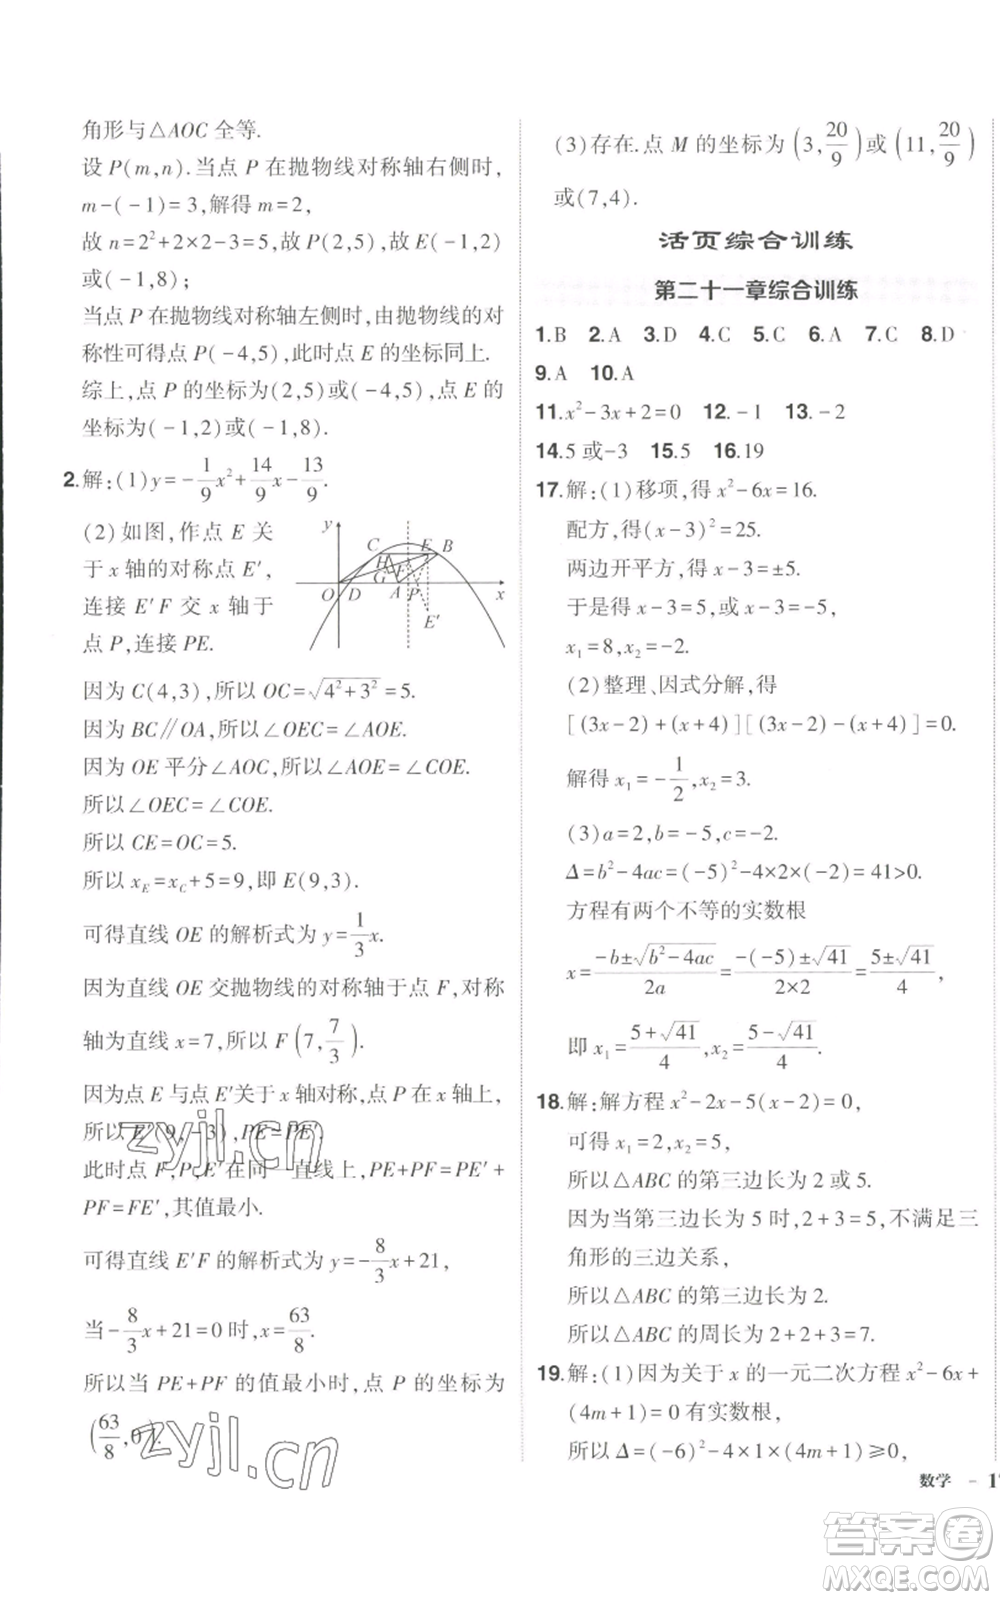 角形与△AOC 全等.
设 P(m,n).当点 P 在抛物线对称轴右侧时,
m-(-1)=3,解得 m=2,
故 n=2²+2×2-3=5,故 P(2,5),故 E(-1,2)
或(-1,8);
当点 P 在抛物线对称轴左侧时,由抛物线的对
称性可得点 P(-4,5),此时点 E 的坐标同上.
综上,点 P 的坐标为(2,5)或(-4,5),点 E 的
坐标为(-1,2)或(-1,8).
2.解:(1)y=-1/9x²+14/9x-13/9.
(2)如图,作点 E 关
于 x 轴的对称点 E′,
连接 E′F 交 x 轴于
点 P,连接 PE.
y
C E B
H
F
G
O D A P x
E′
因为 C(4,3),所以 OC=√(4²+3²)=5.
因为 BC∥OA,所以∠OEC=∠AOE.
因为 OE 平分∠AOC,所以∠AOE=∠COE.
所以∠OEC=∠COE.
所以 CE=OC=5.
所以 x_E=x_C+5=9,即 E(9,3).
可得直线 OE 的解析式为 y=1/3x.
因为直线 OE 交抛物线的对称轴于点 F,对称
轴为直线 x=7,所以 F(7,7/3).
因为点 E 与点 E′关于 x 轴对称,点 P 在 x 轴上,
所以 E′(9,-3),PE=PE′.
此时点 F,P,E′在同一直线上,PE+PF=PE′+
PF=FE′,其值最小.
可得直线 E′F 的解析式为 y=-8/3x+21,
当-8/3x+21=0 时,x=63/8.
所以当 PE+PF 的值最小时,点 P 的坐标为
(63/8,0).
(3)存在.点 M 的坐标为(3,20/9)或(11,20/9)
或(7,4).
活页综合训练
第二十一章综合训练
1.B 2.A 3.D 4.C 5.C 6.A 7.C 8.D
9.A 10.A
11.x²-3x+2=0 12.-1 13.-2
14.5 或-3 15.5 16.19
17.解:(1)移项,得 x²-6x=16.
配方,得(x-3)²=25.
两边开平方,得 x-3=±5.
于是得 x-3=5,或 x-3=-5,
x₁=8,x₂=-2.
(2)整理、因式分解,得
[(3x-2)+(x+4)][(3x-2)-(x+4)]=0.
解得 x₁=-1/2,x₂=3.
(3)a=2,b=-5,c=-2.
Δ=b²-4ac=(-5)²-4×2×(-2)=41>0.
方程有两个不等的实数根
x=(-b±√(b²-4ac))/2a=(-(-5)±√41)/(2×2)=(5±√41)/4,
即 x₁=(5+√41)/4,x₂=(5-√41)/4.
18.解:解方程 x²-2x-5(x-2)=0,
可得 x₁=2,x₂=5,
所以△ABC 的第三边长为 2 或 5.
因为当第三边长为 5 时,2+3=5,不满足三
角形的三边关系,
所以△ABC 的第三边长为 2.
所以△ABC 的周长为 2+2+3=7.
19.解:(1)因为关于 x 的一元二次方程 x²-6x+
(4m+1)=0 有实数根,
所以 Δ=(-6)²-4×1×(4m+1)≥0,
数学 - 1
zyjl.cn
zyjl.cn
答案卷
MXQE.COM